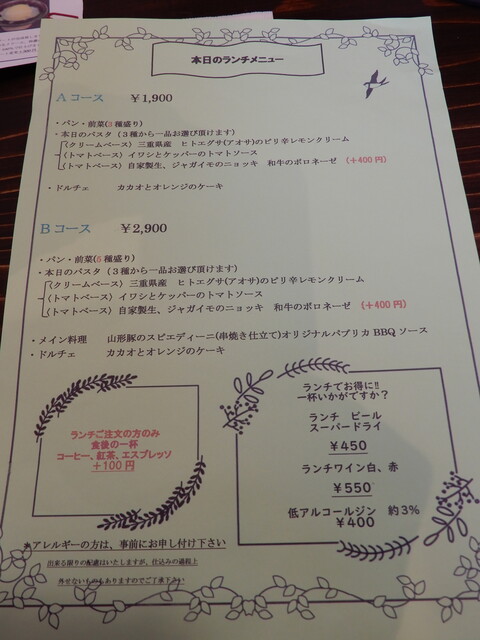 本日のランチメニュー
Aコース ￥1,900
・パン・前菜(3種盛り)
・本日のパスタ（３種から一品お選び頂けます）
〈クリームベース〉三重県産 ヒトエグサ(アオサ)のピリ辛レモンクリーム
〈トマトベース〉イワシとケッパーのトマトソース
〈トマトベース〉自家製生、ジャガイモのニョッキ 和牛のボロネーゼ (＋400円)
・ドルチェ カカオとオレンジのケーキ
Bコース ￥2,900
・パン・前菜(5種盛り)
・本日のパスタ（３種から一品お選び頂けます）
〈クリームベース〉三重県産 ヒトエグサ(アオサ)のピリ辛レモンクリーム
〈トマトベース〉イワシとケッパーのトマトソース
〈トマトベース〉自家製生、ジャガイモのニョッキ 和牛のボロネーゼ (＋400円)
・メイン料理 山形豚のスピエディーニ(串焼き仕立て)オリジナルパプリカ BBQ ソース
・ドルチェ カカオとオレンジのケーキ
ランチご注文の方のみ
食後の一杯
コーヒー、紅茶、エスプレッソ
＋100円
ランチでお得に!!
一杯いかがですか？
ランチ ビール
スーパードライ
￥450
ランチワイン白、赤
￥550
低アルコールジン 約３%
￥400
*アレルギーの方は、事前にお申し付け下さい
出来る限りの配慮はいたしますが、仕込みの過程上
外せないものもありますのでご了承下さい